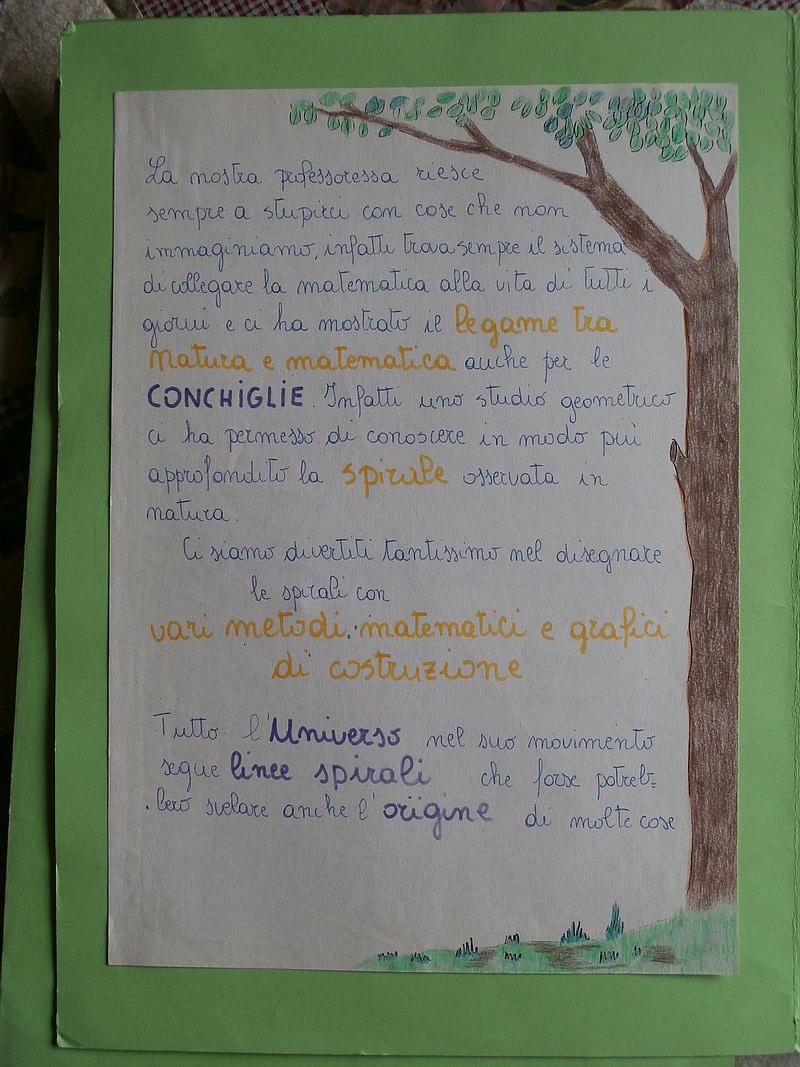 La nostra professoressa riesce
sempre a stupirci con cose che non
immaginiamo, infatti trova sempre il sistema
di collegare la matematica alla vita di tutti i
giorni e ci ha mostrato il legame tra
natura e matematica anche per le
CONCHIGLIE. Infatti uno studio geometrico
ci ha permesso di conoscere in modo più
approfondito la spirale osservata in
natura.
Ci siamo divertiti tantissimo nel disegnare
le spirali con
vari metodi matematici e grafici
di costruzione
Tutto l'Universo nel suo movimento
segue linee spirali che forse potreb=
bero svelare anche l'origine di molte cose.